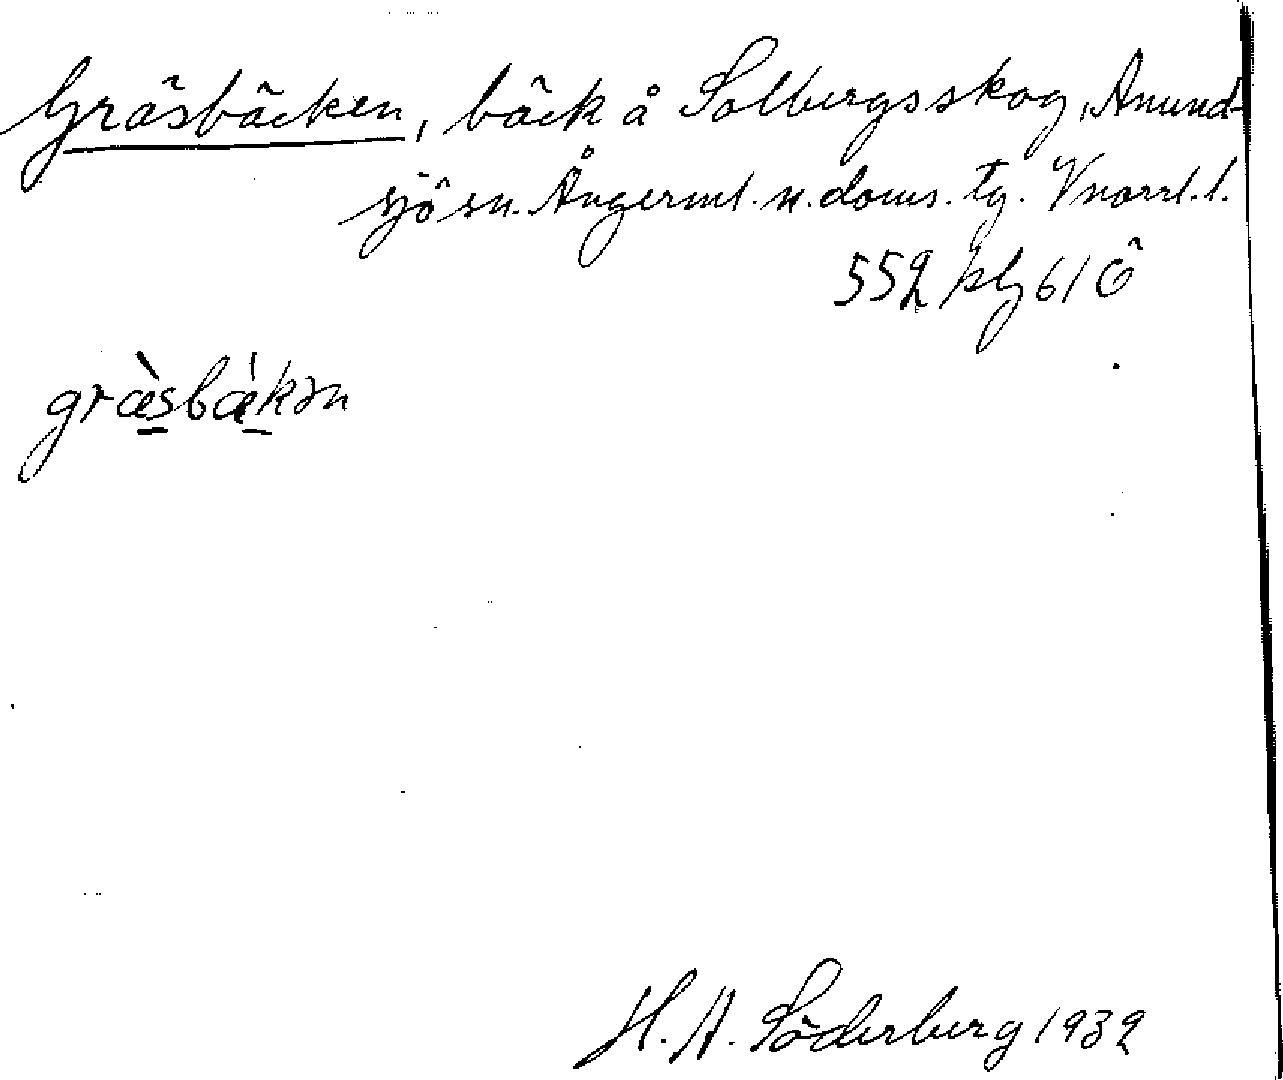 Gräsbäcken, bäck å Solbergsskog, Anund-
sjö sn. Ångerml. n. doms. tg. Vnorrl. l.
552 plg 61 Ö
gràsbàkən
H. A. Söderberg 1932